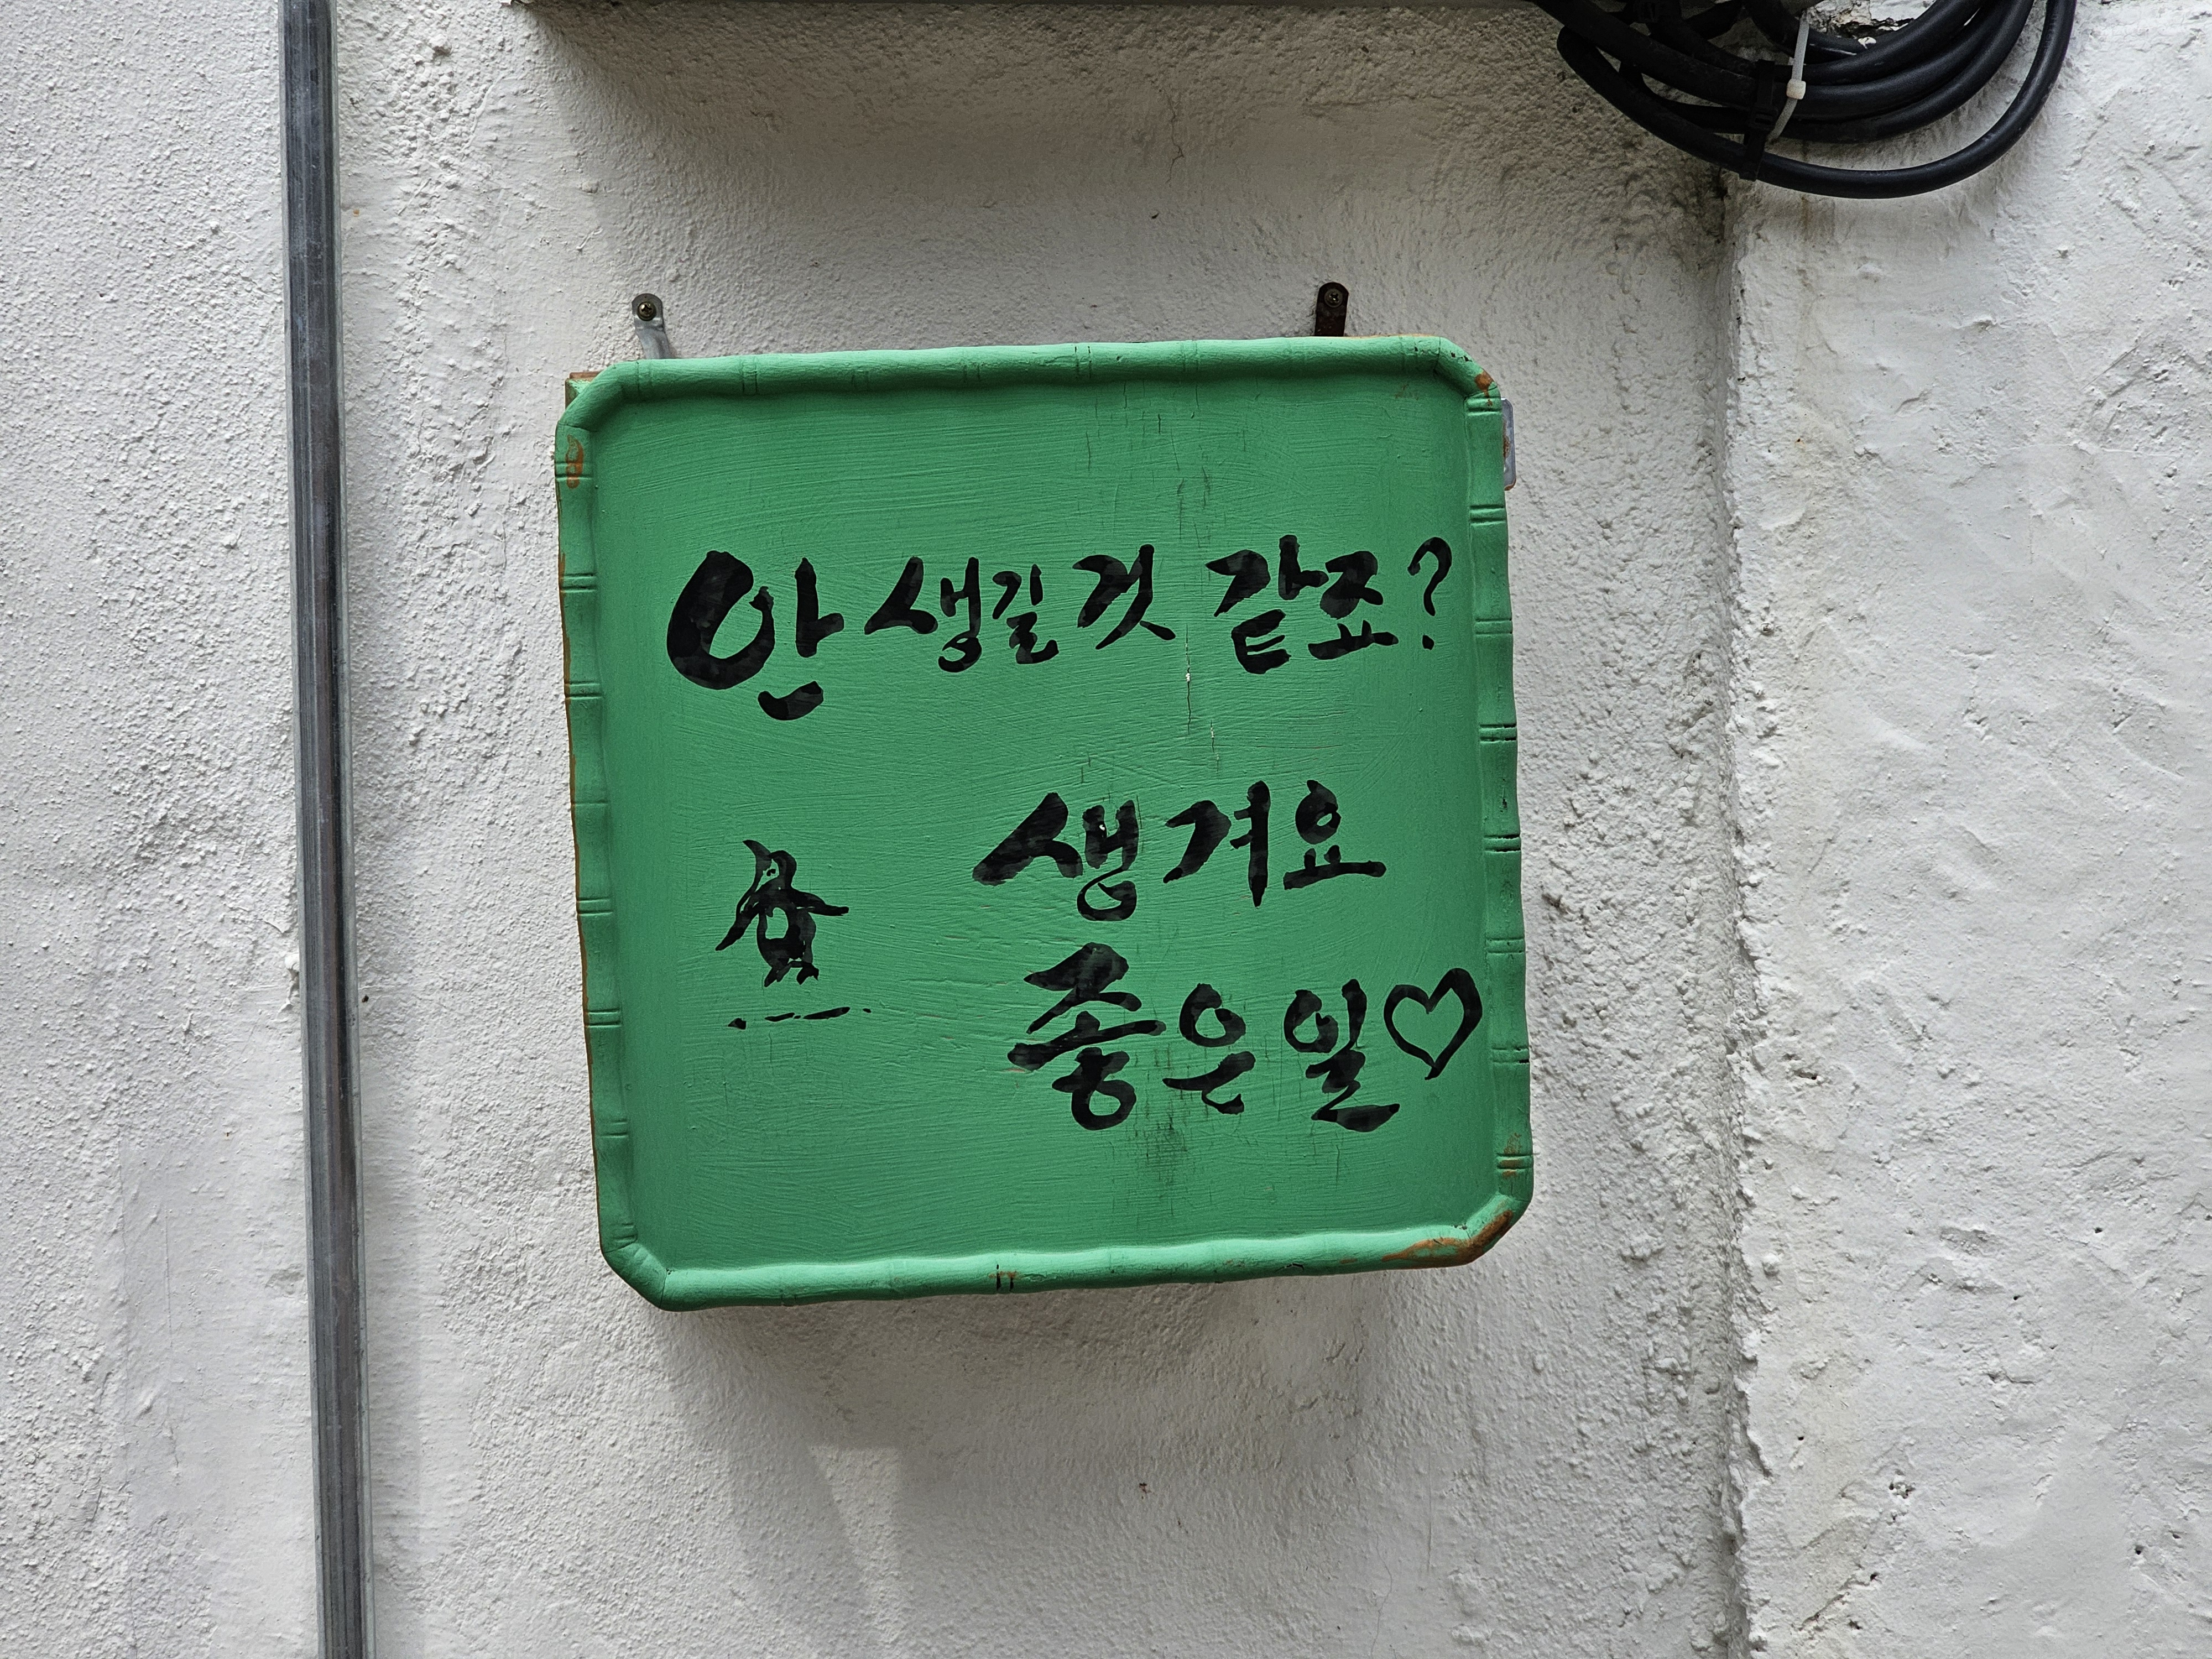 안 생길 것 같죠?
생겨요
좋은 일♡